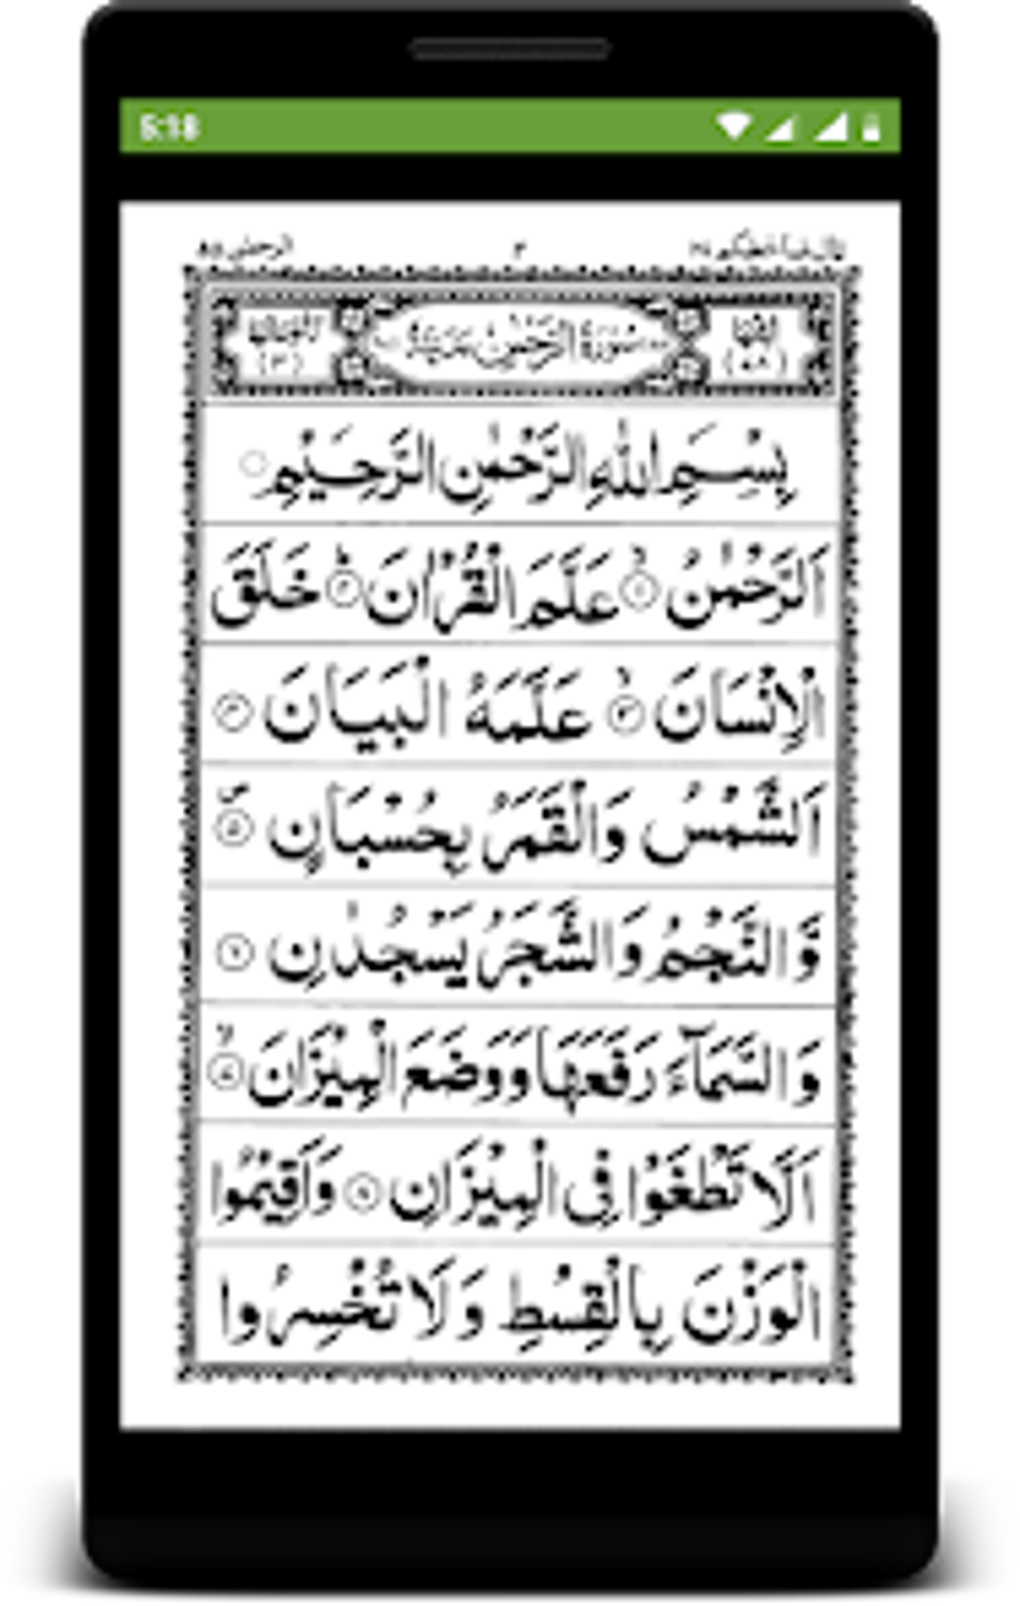 5:18
قال فما خطبكم ٢٧ ٣ الرحمن ٥٥
سُوْرَةُ الرَّحْمٰنِ مَدَنِيَّةٌ
بِسْمِ اللّٰهِ الرَّحْمٰنِ الرَّحِيْمِ ۝
اَلرَّحْمٰنُ ۝١ عَلَّمَ الْقُرْاٰنَ ۝٢ خَلَقَ
الْاِنْسَانَ ۝٣ عَلَّمَهُ الْبَيَانَ ۝٤
اَلشَّمْسُ وَالْقَمَرُ بِحُسْبَانٍ ۝٥
وَّالنَّجْمُ وَالشَّجَرُ يَسْجُدٰنِ ۝٦
وَالسَّمَآءَ رَفَعَهَا وَوَضَعَ الْمِيْزَانَ ۝٧
اَلَّا تَطْغَوْا فِى الْمِيْزَانِ ۝٨ وَاَقِيْمُوا
الْوَزْنَ بِالْقِسْطِ وَلَا تُخْسِرُوا